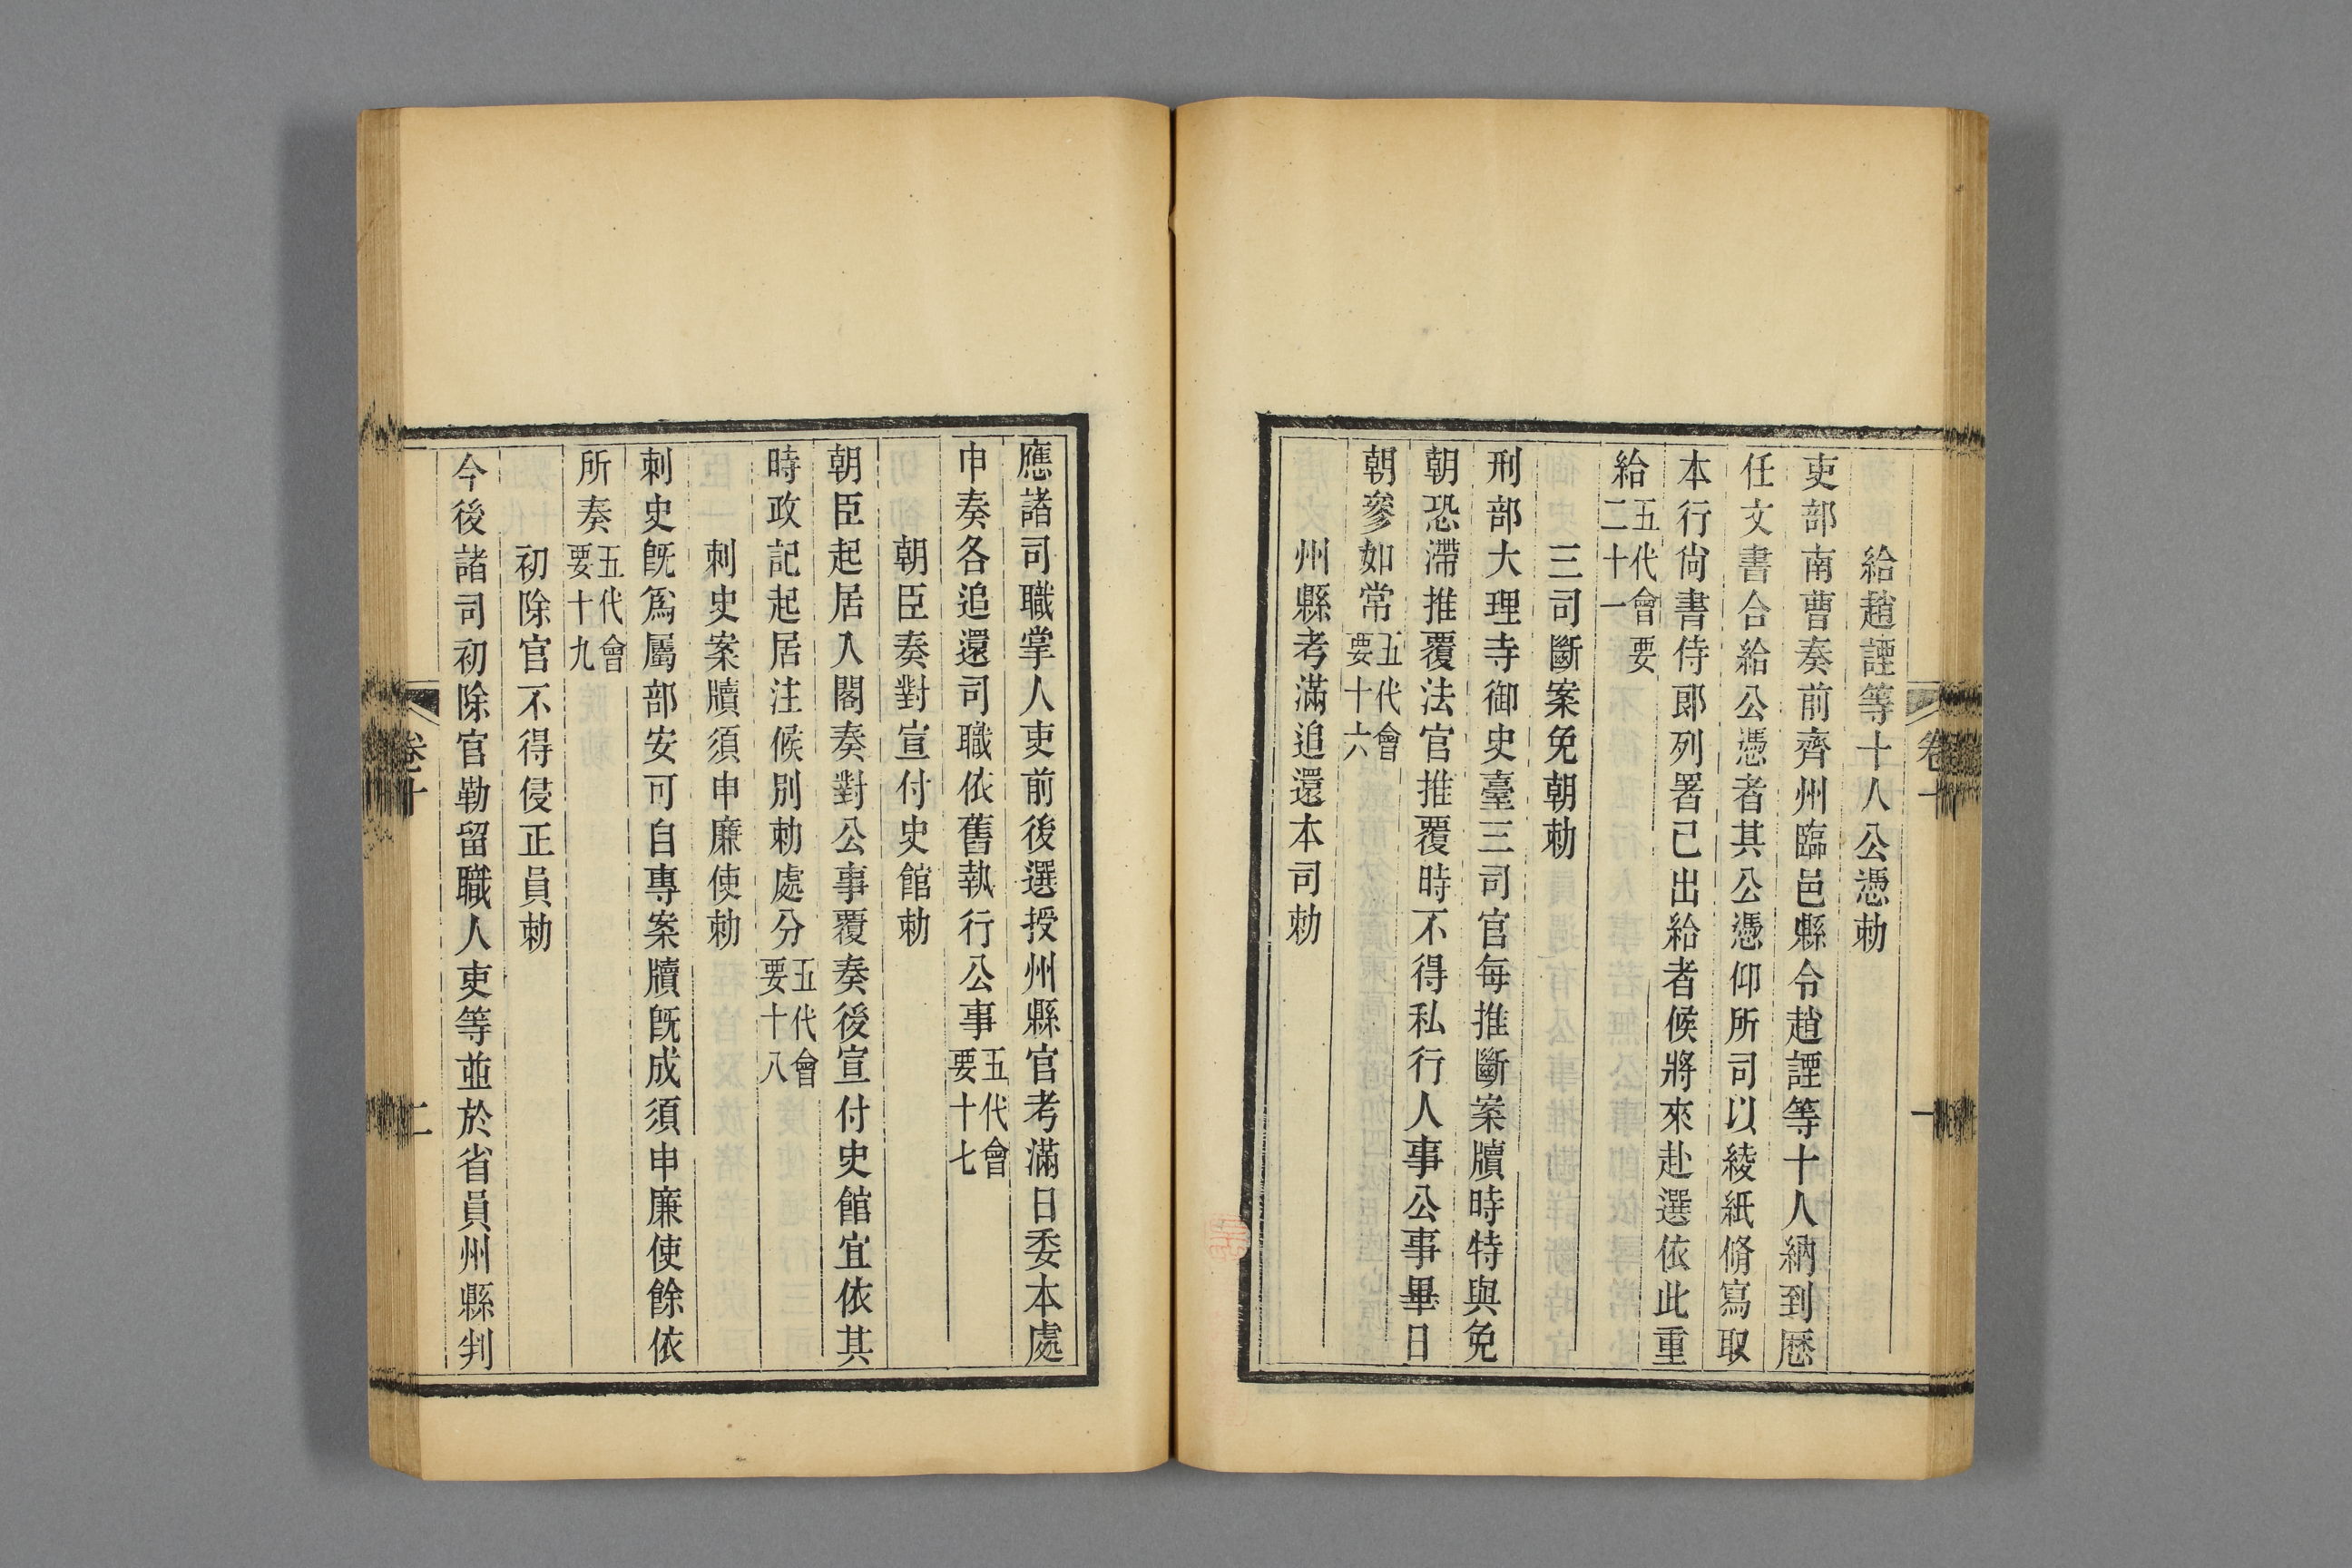 給趙諲等十人公憑勅
吏部南曹奏前齊州臨邑縣令趙諲等十人納到歷
任文書合給公憑者其公憑仰所司以綾紙脩寫取
本行尙書侍郎列署已出給者候將來赴選依此重
給五代會要二十一
三司斷案免朝勅
刑部大理寺御史臺三司官每推斷案牘時特與免
朝恐滯推覆法官推覆時不得私行人事公事畢日
朝參如常五代會要十六
州縣考滿追還本司勅
卷十
一
應諸司職掌人吏前後選授州縣官考滿日委本處
申奏各追還司職依舊執行公事五代會要十七
朝臣奏對宣付史館勅
朝臣起居入閣奏對公事覆奏後宣付史館宜依其
時政記起居注候別勅處分五代會要十八
刺史案牘須申廉使勅
刺史旣爲屬部安可自專案牘旣成須申廉使餘依
所奏五代會要十九
初除官不得侵正員勅
今後諸司初除官勒留職人吏等並於省員州縣判
卷十
二